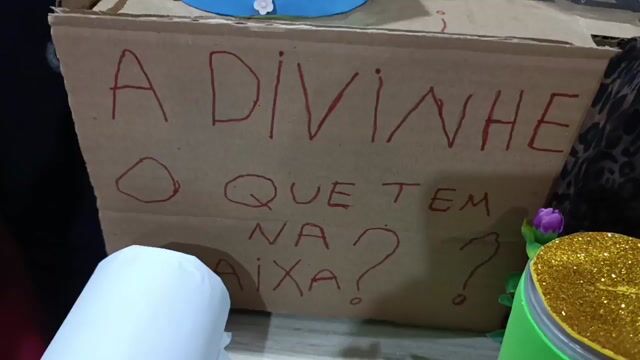 A DIVINHE
O QUE TEM
NA
AIXA? ?